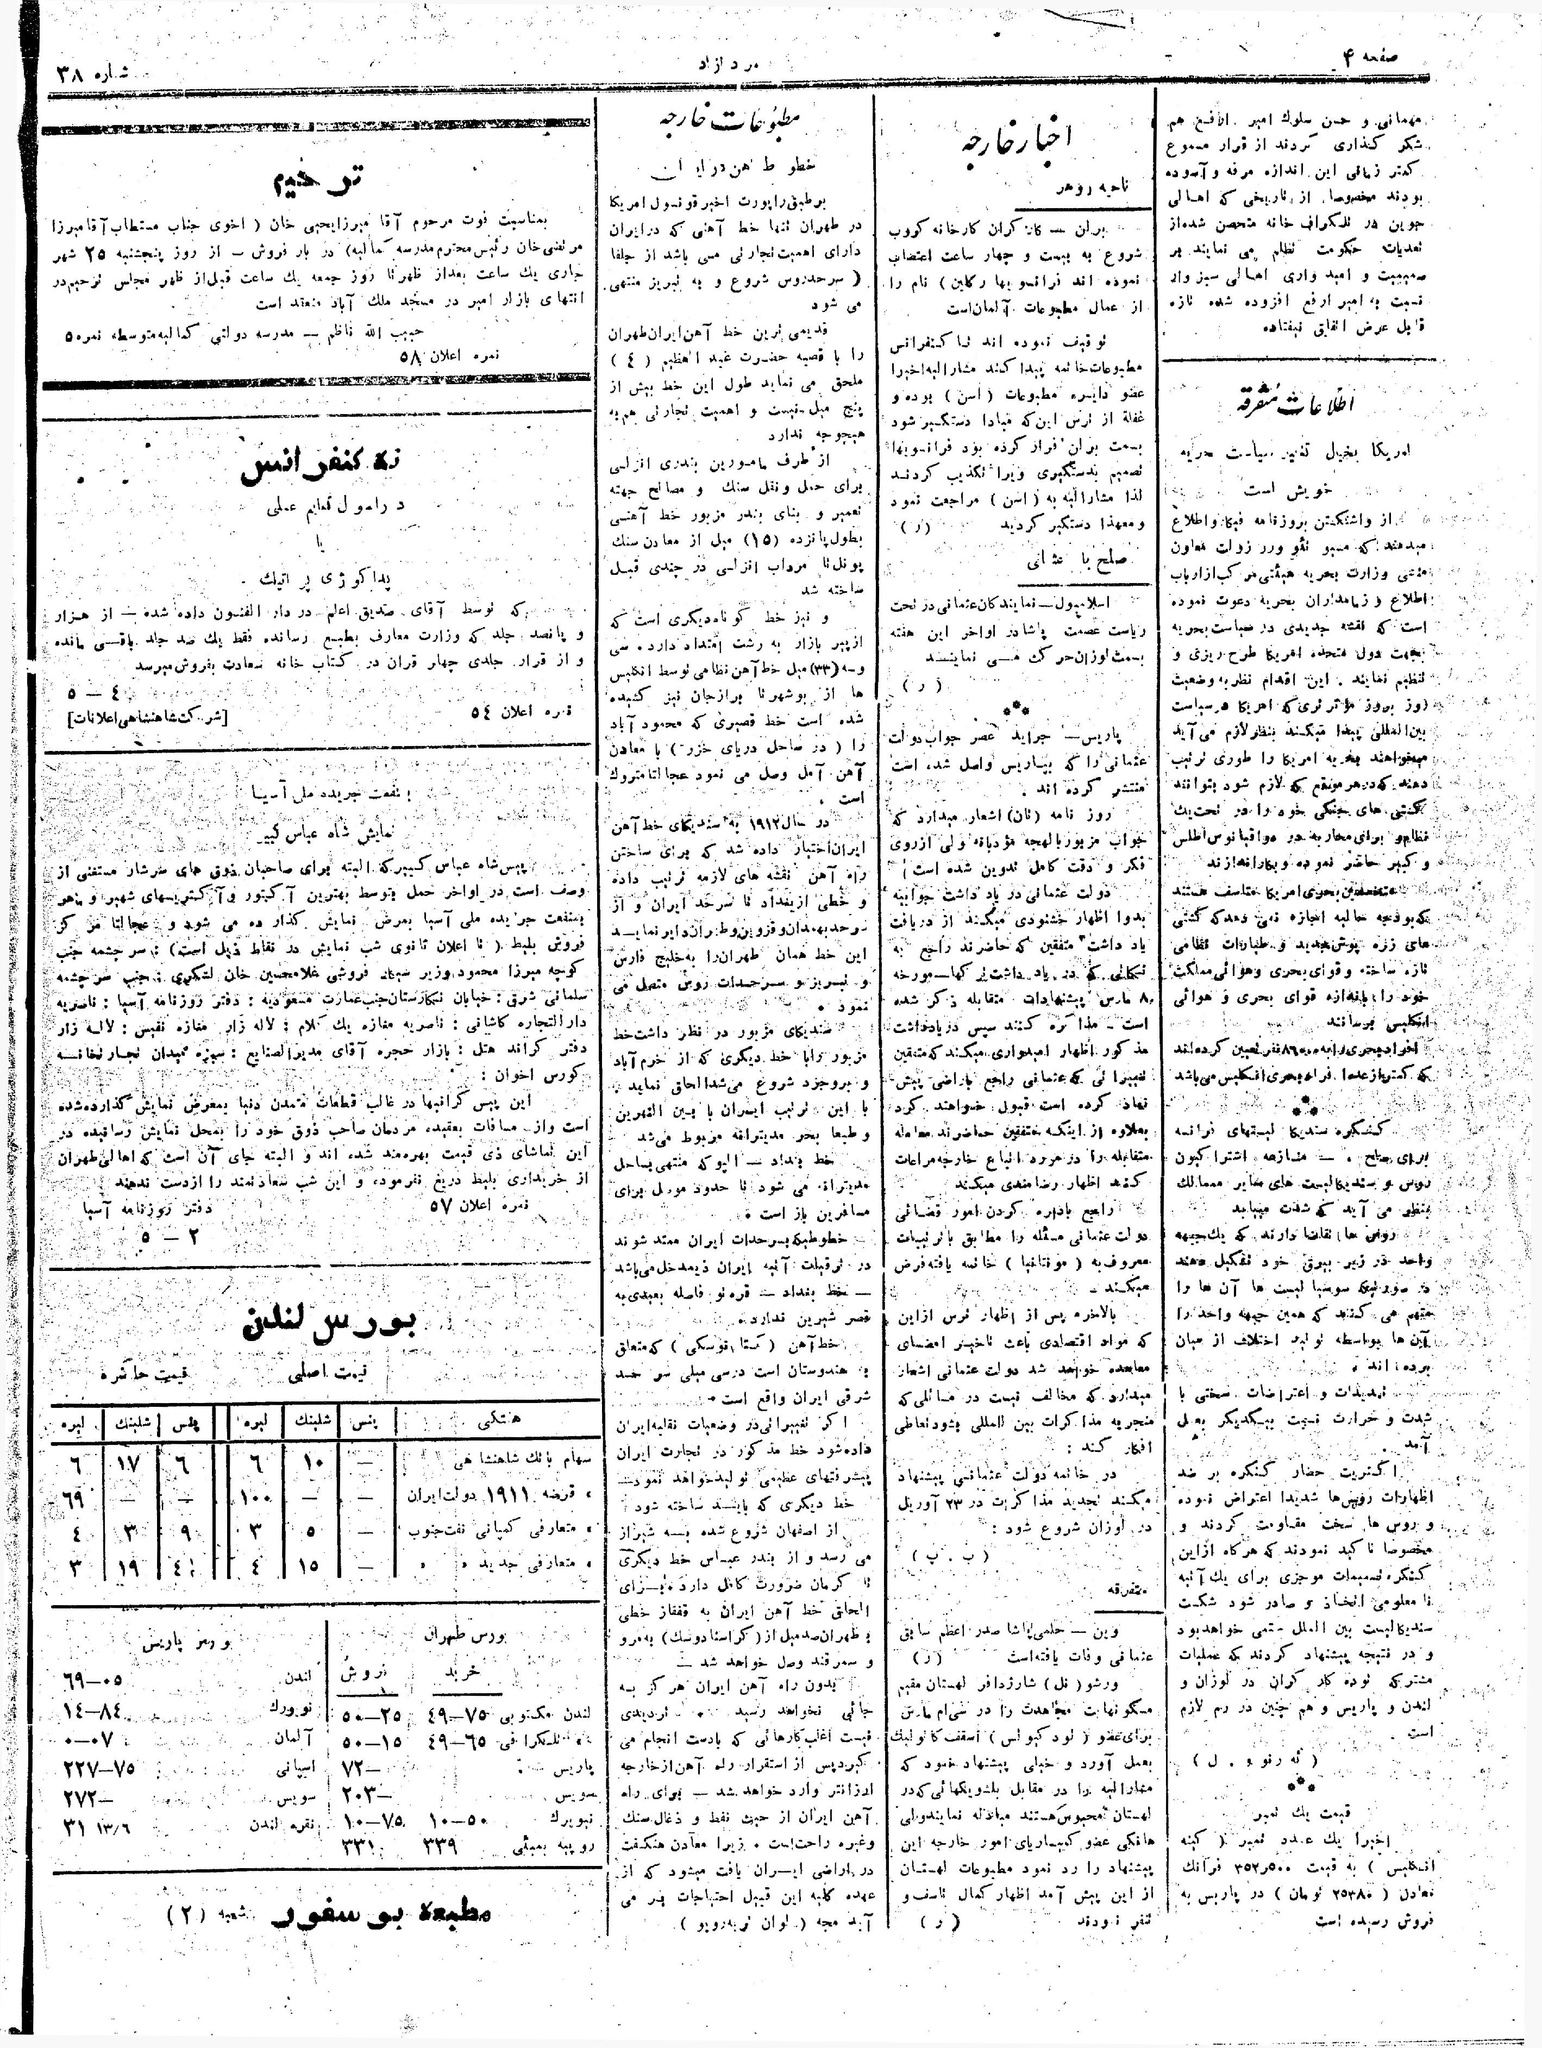 صفحه ۴
مرد آزاد
شماره ۳۸
مهمانی و حسن سلوك امیر افخم هم
شکر گذاری کردند از قرار مسموع
کمتر زمانی این اندازه مرفه و آسوده
بودند مخصوصا از تاریخی که اهالی
جوین در تلگراف خانه متحصن شده از
تعدیات حکومت تظلم می نمایند بر
صمیمیت و امید واری اهالی سبزوار
نسبت به امیر ارفع افزوده شده تازه
قابل عرض اتفاق نیفتاده
اطلاعات متفرقه
امریکا بخیال تغییر سیاست بحریه
خویش است
از واشنگتن بروزنامه فیگارو اطلاع
میدهند که مسیو تئودور روزولت معاون
وزارت بحریه هیئتی مرکب از ارباب
اطلاع و زمامداران بحریه دعوت نموده
است که نقشه جدیدی در سیاست بحریه
بجهت دول متحده امریکا طرح ریزی و
تنظیم نمایند . این اقدام نظر به وضعیت
روز بروز مؤثرتری که امریکا در سیاست
بین المللی پیدا میکند بنظر لازم می آید
میخواهند بحریه امریکا را طوری ترتیب
دهند که در هر موقع که لازم شود بتوانند
کشتی های جنگی خود را در تحت یك
نظام و برای محاربه در دو اقیانوس اطلس
و کبیر حاضر نموده و بکار اندازند
متخصصین بحری امریکا متاسف هستند
که بودجه حالیه اجازه نمی دهد که کشتی
های زره پوش جدید و طیارات نظامی
تازه ساخته و قوای بحری و هوائی مملکت
خود را باندازه قوای بحری و هوائی
انگلیس برسانند
افراد بحری را به ۸۶۰۰۰ نفر تعیین کرده اند
که کمتر از عده افراد بحری انگلیس می باشد
کنگره سندیکا لیستهای فرانسه
برای صلح . — منازعه اشتراکیون
روس و سندیکالیست های سایر ممالك
بنظر می آید که شدت مییابد
روس ها تقاضا دارند که یك جبهه
واحد در زیر بیرق خود تشکیل دهند
در صورتیکه سوسیا لیست ها آن ها را
متهم می کنند که همین جبهه واحد را
آنها بواسطه تولید اختلاف از میان
برده اند .
تهدیدات و اعتراضات سختی با
شدت و حرارت نسبت بیکدیگر بعمل
آمد .
اکثریت حضار کنگره بر ضد
اظهارات روسها شدیدا اعتراض نموده
و روس ها سخت مقاومت کردند و
مخصوصا تاکید نمودند که هرگاه از این
کنگره تصمیمات موجزی برای یك آتیه
نا معلومی اتخاذ و صادر شود شکست
سندیکالیست بین الملل حتمی خواهد بود
و در نتیجه پیشنهاد کردند که عملیات
مشترکه توده کار گران در لوزان و
لندن و پاریس و هم چنین در رم لازم
است .
قیمت یك تمبر
اخیرا یك عدد تمبر ( کینه
انگلیس ) به قیمت ۳۵۲٫۵۰۰ فرانك
معادل ( ۲۵۳۸۰ تومان ) در پاریس به
فروش رسیده است
اخبار خارجه
ناحیه روهر
برلن — کار گران کارخانه کروپ
شروع به بیست و چهار ساعت اعتصاب
نموده اند فرانسویها رکلین ) نام را
از عمال مطبوعات آلمان است
توقیف نموده اند تا کنفرانس
مطبوعات خاتمه پیدا کند مشارالیه اخیرا
عضو دایره مطبوعات ( اسن ) بوده و
غفلة از ترس این که مبادا دستگیر شود
بسمت برلن فرار کرده بود فرانسویها
تصمیم بدستگیری ویرا تکذیب کردند
لذا مشارالیه به ( اسن ) مراجعت نمود
و معهذا دستگیر گردید ( ر )
صلح با عثمانی
اسلامبول — نمایندکان عثمانی در تحت
ریاست عصمت پاشا در اواخر این هفته
بسمت لوزان حرکت می نمایند
( ر )
پاریس — جراید عصر جواب دولت
عثمانی را که بپاریس واصل شده است
منتشر کرده اند .
روز نامه (تان) اشعار میدارد که
جواب مزبور بالهجه مؤدبانه ولی از روی
فکر و دقت کامل تدوین شده است
دولت عثمانی در یاد داشت جوابیه
بدوا اظهار خشنودی میکند از دریافت
یاد داشت متفقین که حاضرند راجع به
نکاتی که در یاد داشت ترکها — مورخه
۸ مارس پیشنهادات متقابله ذکر شده
است — مذا کره کنند سپس در یادداشت
مذکور اظهار امیدواری میکند که متفقین
تغییراتی که عثمانی راجع باراضی پیش
نهاد کرده است قبول خواهند کرد
بعلاوه از اینکه متفقین حاضرند معامله
متقابله را در مورد اتباع خارجه مراعات
کنند اظهار رضامندی میکند
راجع باداره کردن امور قضائی
دولت عثمانی مسئله را مطابق با ترتیبات
معروف به ( مونتانیا ) خاتمه یافته فرض
میکند .
بالاخره پس از اظهار ترس از این
که مواد اقتصادی باعث تاخیر امضای
معاهده خواهد شد دولت عثمانی اشعار
میدارد که مخالف نیست در مسائلی که
منجر به مذاکرات بین المللی بشود تعاطی
افکار کند :
در خاتمه دولت عثمانی پیشنهاد
میکند تجدید مذاکرات در ۲۳ آوریل
در لوزان شروع شود :
( ب . پ )
متفرقه
وین — حلمی پاشا صدر اعظم سابق
عثمانی وفات یافته است ( ر )
ورشو ( نل ) شارژ دافر لهستان مقیم
مسکو نهایت مجاهدت را در سی ام مارس
برای عضو ( بود کیوایس ) اسقف کاتولیك
بعمل آورد و خیلی پیشنهاد نمود که
مشارالیه را در مقابل بلشویکهائی که در
لهستان محبوس هستند مبادله نماید ولی
هانکی عضو کمیساریای امور خارجه این
پیشنهاد را رد نمود مطبوعات لهستان
از این پیش آمد اظهار کمال تاسف و
تنفر نمودند ( ر )
مطبوعات خارجه
خطوط آهن در ایران
برطبق راپورت اخیر قونسول امریکا
در طهران تنها خط آهنی که در ایران
دارای اهمیت تجارتی می باشد از جلفا
( سرحد روس شروع و به تبریز منتهی
می شود
قدیمی ترین خط آهن ایران طهران
را با قصبه حضرت عبد العظیم ( ٤ )
ملحق می نماید طول این خط بیش از
پنج میل نیست و اهمیت تجارتی هم به
هیچوجه ندارد
از طرف مامورین بندری انزلی
برای حمل و نقل سنك و مصالح جهته
تعمیر و بنای بندر مزبور خط آهنی
بطول پانزده (۱٥) میل از معادن سنك
پونل تا مرداب انزلی در چندی قبل
ساخته شد
و نیز خط کوتاه دیگری است که
از پیر بازار به رشت امتداد دارد . سی
و سه (۳۳) میل خط آهن نظامی توسط انگلیس
ها از بوشهر تا برازجان نیز کشیده
شده است خط قصیری که محمود آباد
را ( در ساحل دریای خزر ) با معادن
آهن آمل وصل می نمود عجالتا متروك
است .
در سال ۱۹۱۲ به سندیکای خط آهن
ایران اختیار داده شد که برای ساختن
راه آهن نقشه های لازمه ترتیب داده
و خطی از بغداد تا سرحد ایران و از
سرحد بهمدان و قزوین و طهران دایر نماید
این خط همان طهران را به خلیج فارس
و تبریز و سرحدات روس متصل می
نمود .
سندیکای مزبور در نظر داشت خط
مزبور را با خط دیگری که از خرم آباد
و بروجرد شروع می شد الحاق نماید
با این ترتیب ایران با بین النهرین
و طبعا بحر مدیترانه مربوط می شد
خط بغداد — الپو که منتهی بساحل
مدیترانه می شود تا حدود موصل برای
مسافرین باز است .
خطوطیکه بسرحدات ایران ممتد شوند
در ترقیات آتیه ایران ذیمدخل می باشد
— خط بغداد — قره تو فاصله بعیدی به
قصر شیرین ندارد .
خط آهن ( که متعلق
به هندوستان است در سی میلی سر حد
شرقی ایران واقع است .
اکر تغییراتی در وضعیات نقلیه ایران
داده شود خط مذکور در تجارت ایران
پیشرفتهای عظیمی تولید خواهد نمود —
خط دیگری که بایستد ساخته شود
از اصفهان شروع شده بسه شیراز
می رسد و از بندر عباس خط دیگری
تا کرمان ضرورت کامل دارد . برای
الحاق خط آهن ایران به قفقاز خطی
به طهران صد میل از (کراسنا ودسك) به مرو
و سمرقند وصل خواهد شد —
بدون راه آهن ایران هر گز به
جائی نخواهد رسید . تردیدی
نیست اغلب کارهائی که بادست انجام می
گیرد پس از استقرار راه آهن از خارجه
ارزانتر وارد خواهد شد — برای راه
آهن ایران از حیث نفط و ذغال سنك
وغیره راحت است . زیرا معادن هنگفت
در اراضی ایران یافت میشود که از
عهده کلیه این قبیل احتیاجات بر می
آید
ترحیم
بمناسبت فوت مرحوم آقا میرزا یحیی خان ( اخوی جناب مستطاب آقا میرزا
مرتضی خان رئیس محترم مدرسه کمالیه ) در بار فروش — از روز پنجشنبه ۲۵ شهر
جاری یك ساعت بعد از ظهر تا روز جمعه یك ساعت قبل از ظهر مجلس ترحیم در
انتهای بازار امیر در مسجد ملك آباد منعقد است
حبیب الله ناظم — مدرسه دولتی کمالیه متوسطه نمره ٥
نمره اعلان ٥٨
نه کنفرانس
در اصول تعلیم عملی
یا
پداگوژی پراتیك .
که توسط آقای صدیق اعلم در دار الفنون داده شده — از هزار
و پانصد جلد که وزارت معارف بطبع رسانده فقط یك صد جلد باقی مانده
و از قرار جلدی چهار قران در کتاب خانه سعادت بفروش میرسد
٤ — ٥
نمره اعلان ٥٤ [شرکت شاهنشاهی اعلانات]
بمنفعت جریده ملی آسیا
نمایش شاه عباس کبیر
پیس شاه عباس کبیر که البته برای صاحبان ذوق های سرشار مستغنی از
وصف است در اواخر حمل بتوسط بهترین آکتور و آکتریسهای شهیر و ماهر
بمنفعت جریده ملی آسیا بمعرض نمایش گذارده می شود و عجالتا مرکز
فروش بلیط ( تا اعلان ثانوی شب نمایش در نقاط ذیل است ) : سر چشمه جنب
کوچه میرزا محمود وزیر سیگار فروشی غلامحسین خان لشکری : جنب سر چشمه
سلمانی شرق : خیابان نگارستان جنب عمارت مسعودیه : دفتر روزنامه آسیا : ناصریه
دار التجاره کاشانی : ناصریه مغازه یك کلام : لاله زار مغازه نفیس : لاله زار
دفتر گراند هتل : بازار حجره آقای مدیر الصنایع : سبزه میدان تجارتخانه
کورس اخوان :
این پیس کرافیها در غالب قطعات متمدن دنیا بمعرض نمایش گذارده شده
است و از مسافات بعیده مردمان صاحب ذوق خود را بمحل نمایش رسانیده در
این تماشای ذی قیمت بهره مند شده اند و البته جای آن است که اهالی طهران
از خریداری بلیط دریغ نفرمود، و این شب سعادتمند را از دست ندهند
نمره اعلان ٥٧ دفتر روزنامه آسیا
۲ — ٥
بورس لندن
قیمت اصلی قیمت حاضره
هفتگی پنس شلینك لیره پنس شلینك لیره
سهام بانك شاهنشاهی — ۱۰ ۶ ۶ ۱۷ ۶
« قرضه ۱۹۱۱ دولت ایران — — ۱۰۰ — — ۶۹
« متعارفی کمپانی نفت جنوب — ٥ ۳ ۹ ۳ ٤
« متعارفی جدید « « — ۱٥ ٤ ٤ ۱۹ ۳
بورس طهران
خرید فروش
لندن مکتوبی ۷۵—۴۹ ۲۵—۵۰
« تلگرافی ۶۵—۴۹ ۱۵—۵۰
پاریس —۷۲
سویس —۲۰۳
نیویرك ۵۰—۱۰ ۷۵—۱۰
روپیه بمبئی ۳۳۹ ۳۳۱
بورس پاریس
لندن ۰۵—۶۹
نویورك ۸۴—۱۴
آلمان ۰۷—۰
اسپانی ۷۵—۲۲۷
سویس —۲۷۲
نقره لندن ۱۳/۶ ۳۱
مطبعه بوسفور شعبه (۲)